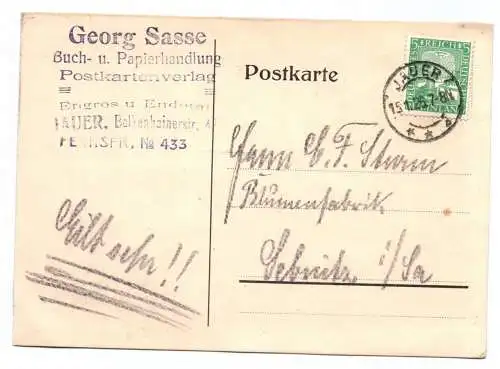 Georg Sasse
Buch- u. Papierhandlung
Postkartenverlag
Engros u Endetail
JAUER, Bolkenhainerstr. 4
FERNSPR. No 433
Postkarte
5 REICH 5
JAUER
Herrn C. F. Sturm
Blumenfabrik
Sebnitz i/Sa
Eilt sehr!!